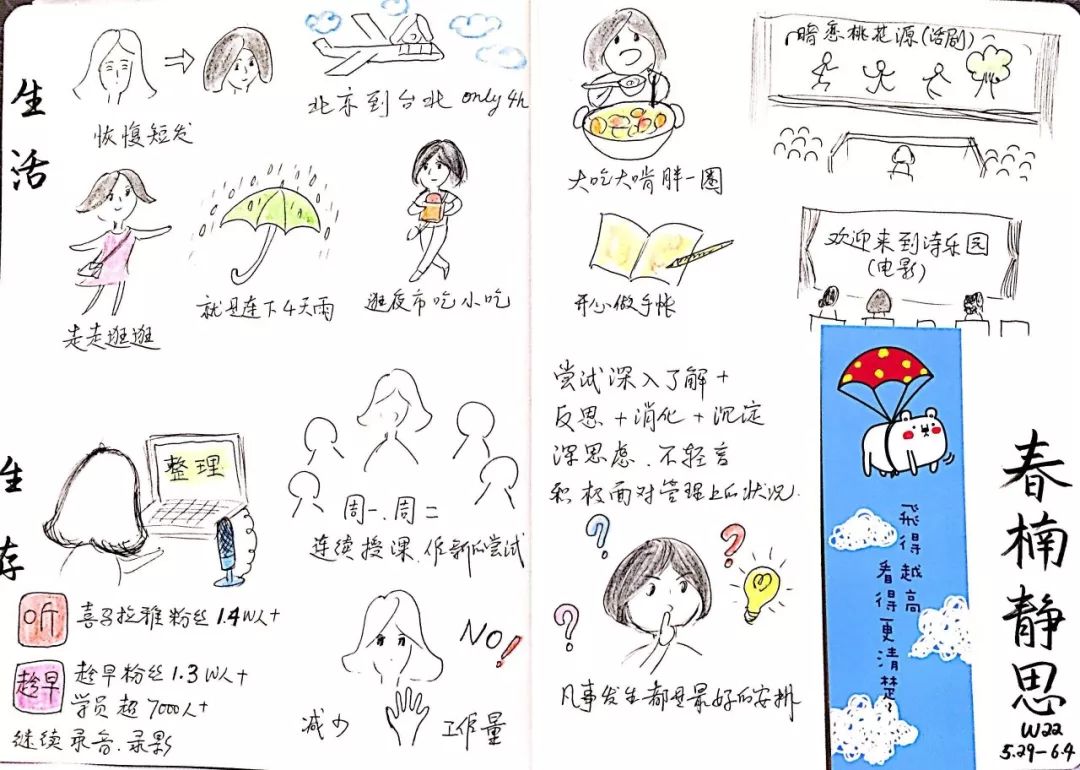 生活
恢復短发
北京到台北 only 4h
走走逛逛
就是连下4天雨
逛夜市吃小吃
大吃大啃胖一圈
暗恋桃花源(话剧)
开心做手帐
欢迎来到诗乐园
(电影)
生存
整理
周一、周二
连续授课、作新的尝试
听
喜马拉雅粉丝 1.4W人+
趁早
趁早粉丝 1.3W人+
学员超 7000人+
继续录音、录影
NO!
减少 工作量
尝试深入了解+
反思+消化+沉淀
深思虑、不轻言
积极面对管理上的状况.
凡事发生都是最好的安排
飛得越高
看得更清楚
春楠静思
W22
5.29-6.4